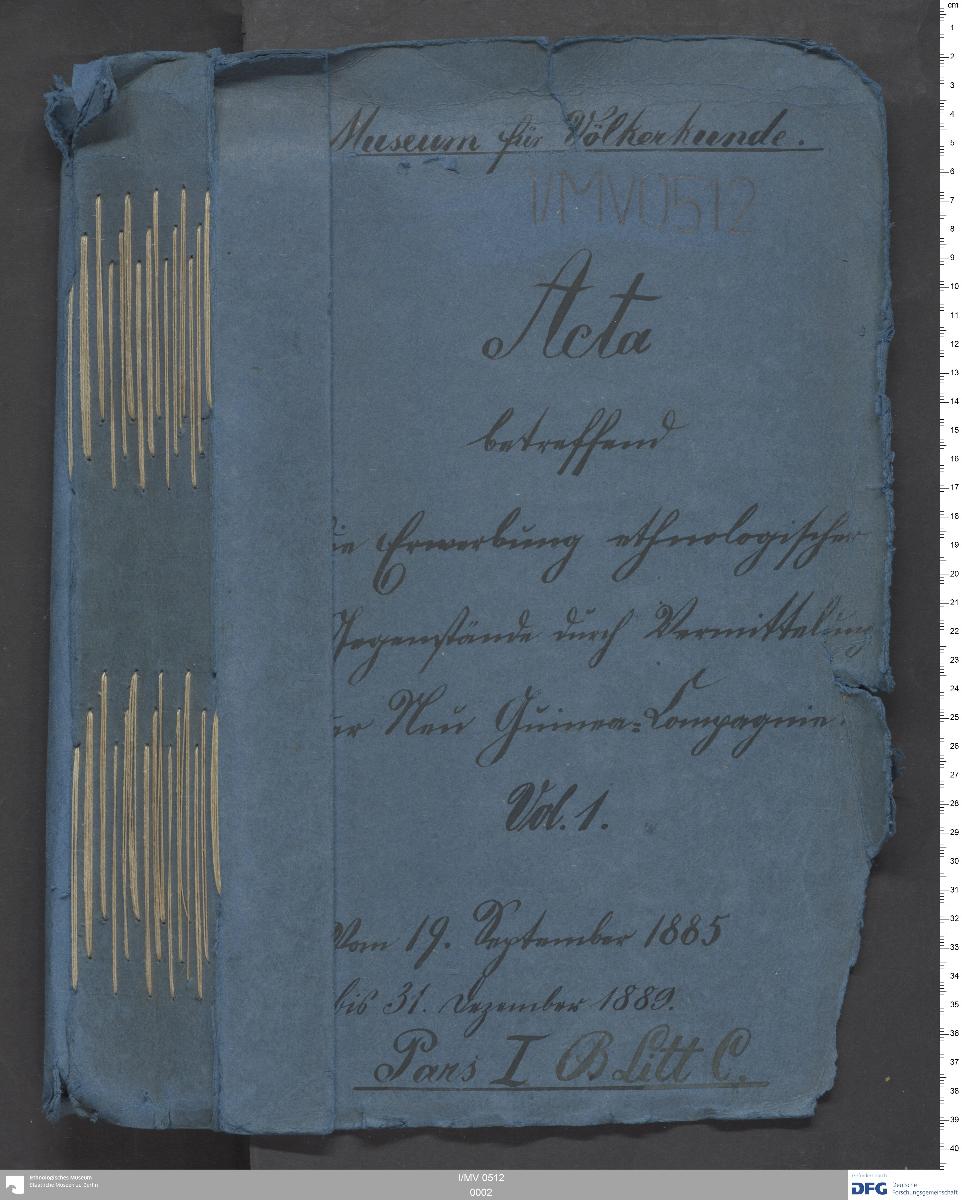 Museum für Völkerkunde.
I/MV0512
Acta
betreffend
die Erwerbung ethnologischer
Gegenstände durch Vermittelung
der Neu Guinea-Compagnie.
Vol. 1.
Vom 19. September 1885
bis 31. Dezember 1889.
Pars I B Litt C.
cm
1
2
3
4
5
6
7
8
9
10
11
12
13
14
15
16
17
18
19
20
21
22
23
24
25
26
27
28
29
30
31
32
33
34
35
36
37
38
39
40
Ethnologisches Museum
Staatliche Museen zu Berlin
I/MV 0512
0002
gefördert durch
DFG Deutsche
Forschungsgemeinschaft